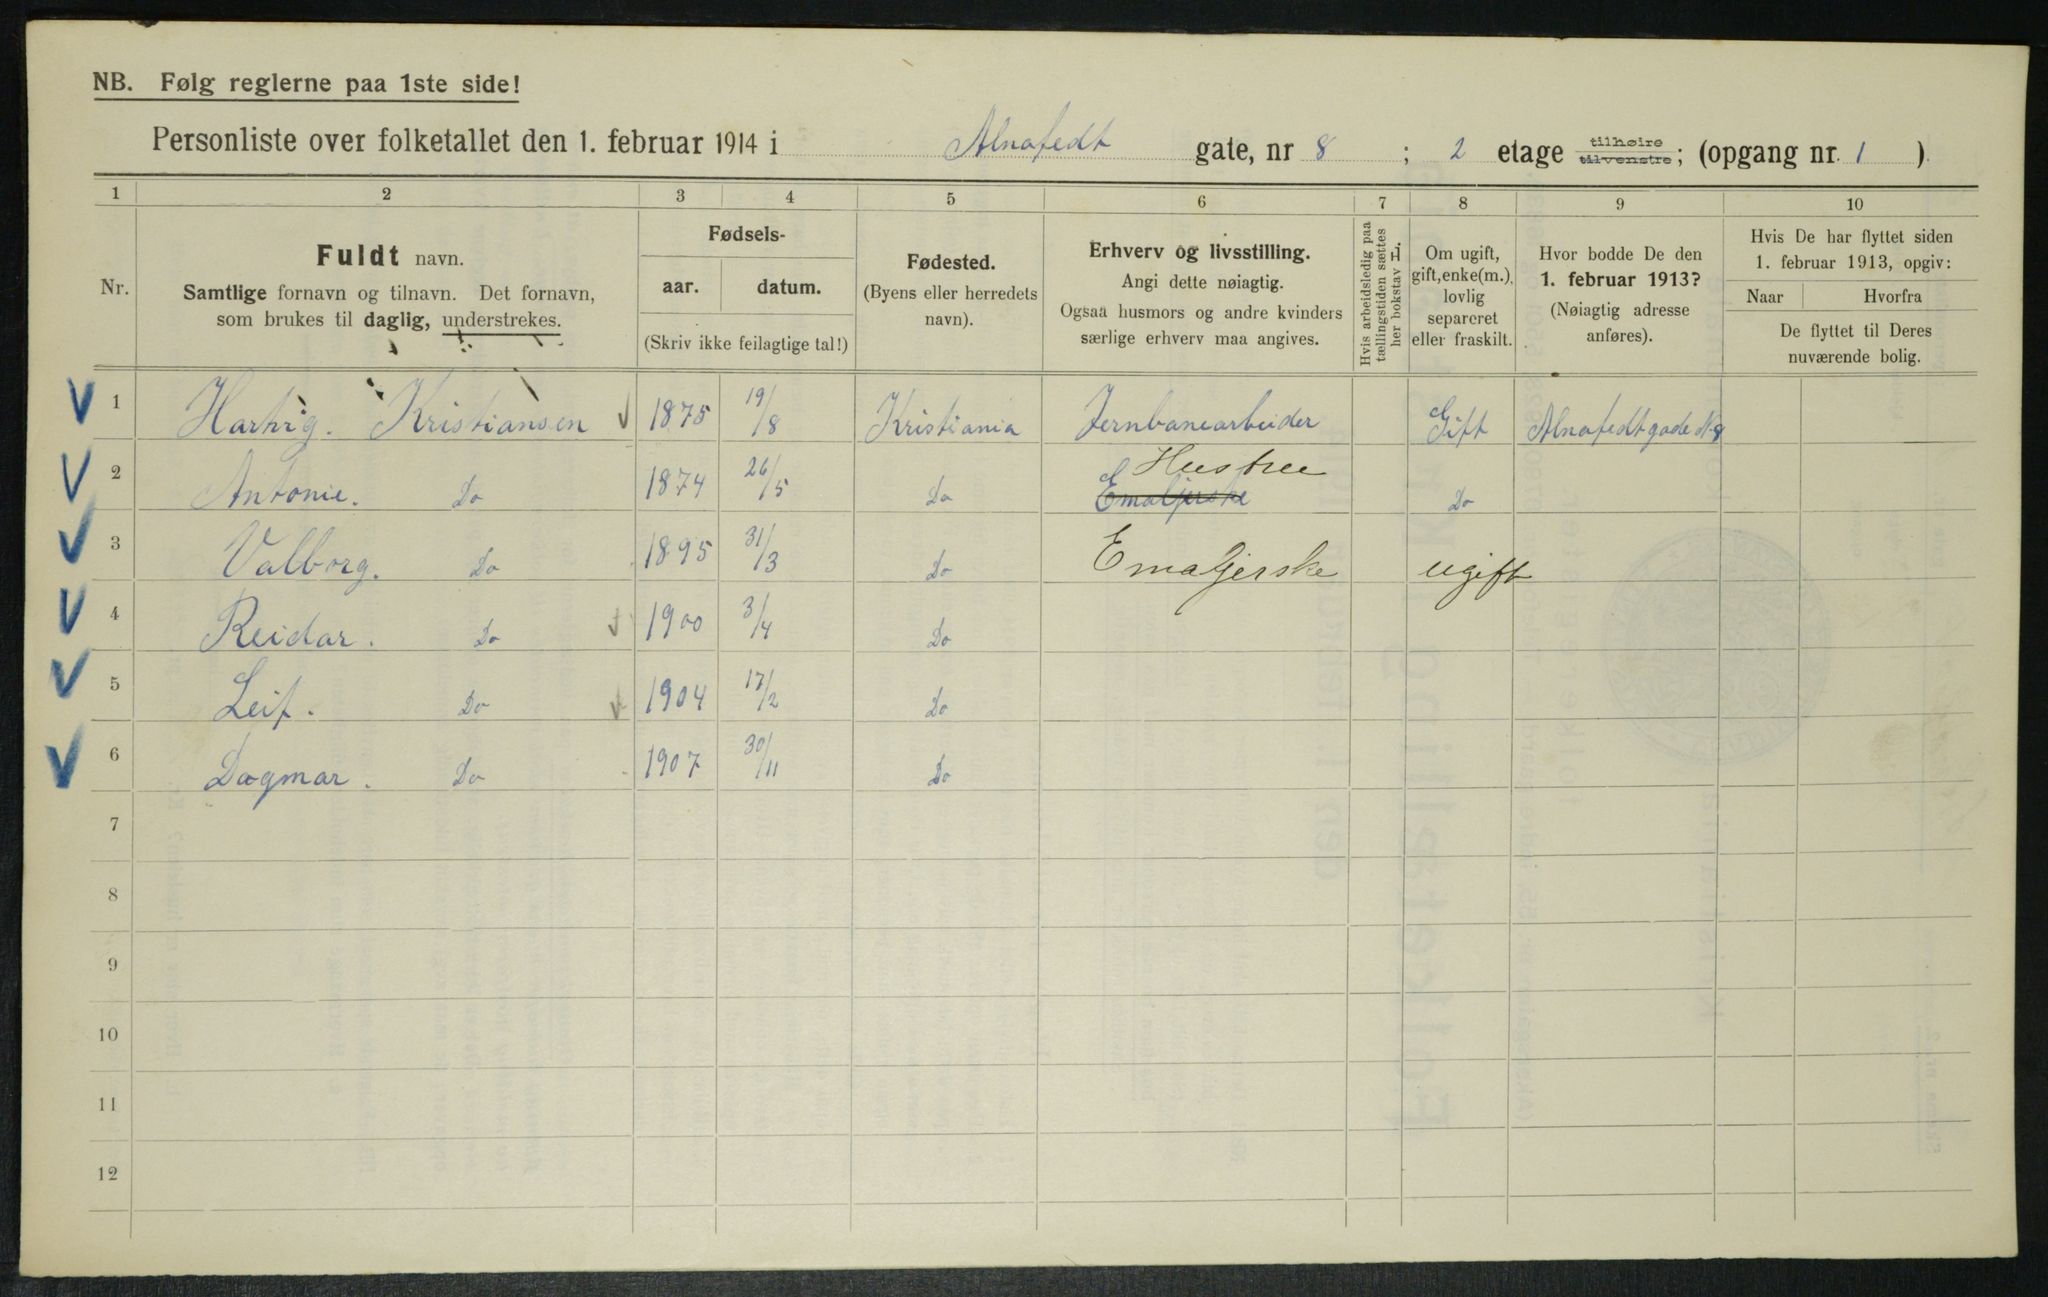 NB. Følg reglerne paa 1ste side!
Personliste over folketallet den 1. februar 1914 i Alnafedt gate, nr 8 ; 2 etage tilhøire tilvenstre; (opgang nr. 1 ).
1 2 3 4 5 6 7 8 9 10
Nr.
Fuldt navn.
Samtlige fornavn og tilnavn. Det fornavn,
som brukes til daglig, understrekes.
Fødsels-
aar. datum.
(Skriv ikke feilagtige tal!)
Fødested.
(Byens eller herredets
navn).
Erhverv og livsstilling.
Angi dette nøiagtig.
Ogsaa husmors og andre kvinders
særlige erhverv maa angives.
Hvis arbeidsledig paa
tællingstiden sættes
her bokstav L.
Om ugift,
gift, enke(m.),
lovlig
separeret
eller fraskilt.
Hvor bodde De den
1. februar 1913?
(Nøiagtig adresse
anføres).
Hvis De har flyttet siden
1. februar 1913, opgiv:
Naar Hvorfra
De flyttet til Deres
nuværende bolig.
1 Hartvig. Kristiansen 1875 19/8 Kristiania Jernbanearbeider Gift Alnafedtgade N 8
2 Antonie. Do 1874 26/5 Do Hustru Emaljerske Do
3 Valborg. Do 1895 31/3 Do Emaljerske ugift
4 Reidar. Do 1900 3/4 Do
5 Leif. Do 1904 17/2 Do
6 Dagmar. Do 1907 30/11 Do
7
8
9
10
11
12